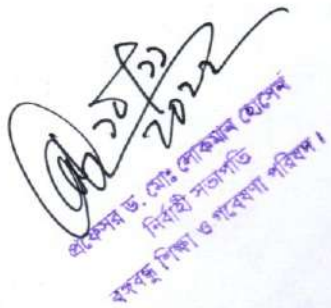 ২০২২
প্রফেসর ড. মোঃ লোকমান হোসেন
নির্বাহী সভাপতি
বঙ্গবন্ধু শিক্ষা ও গবেষণা পরিষদ।